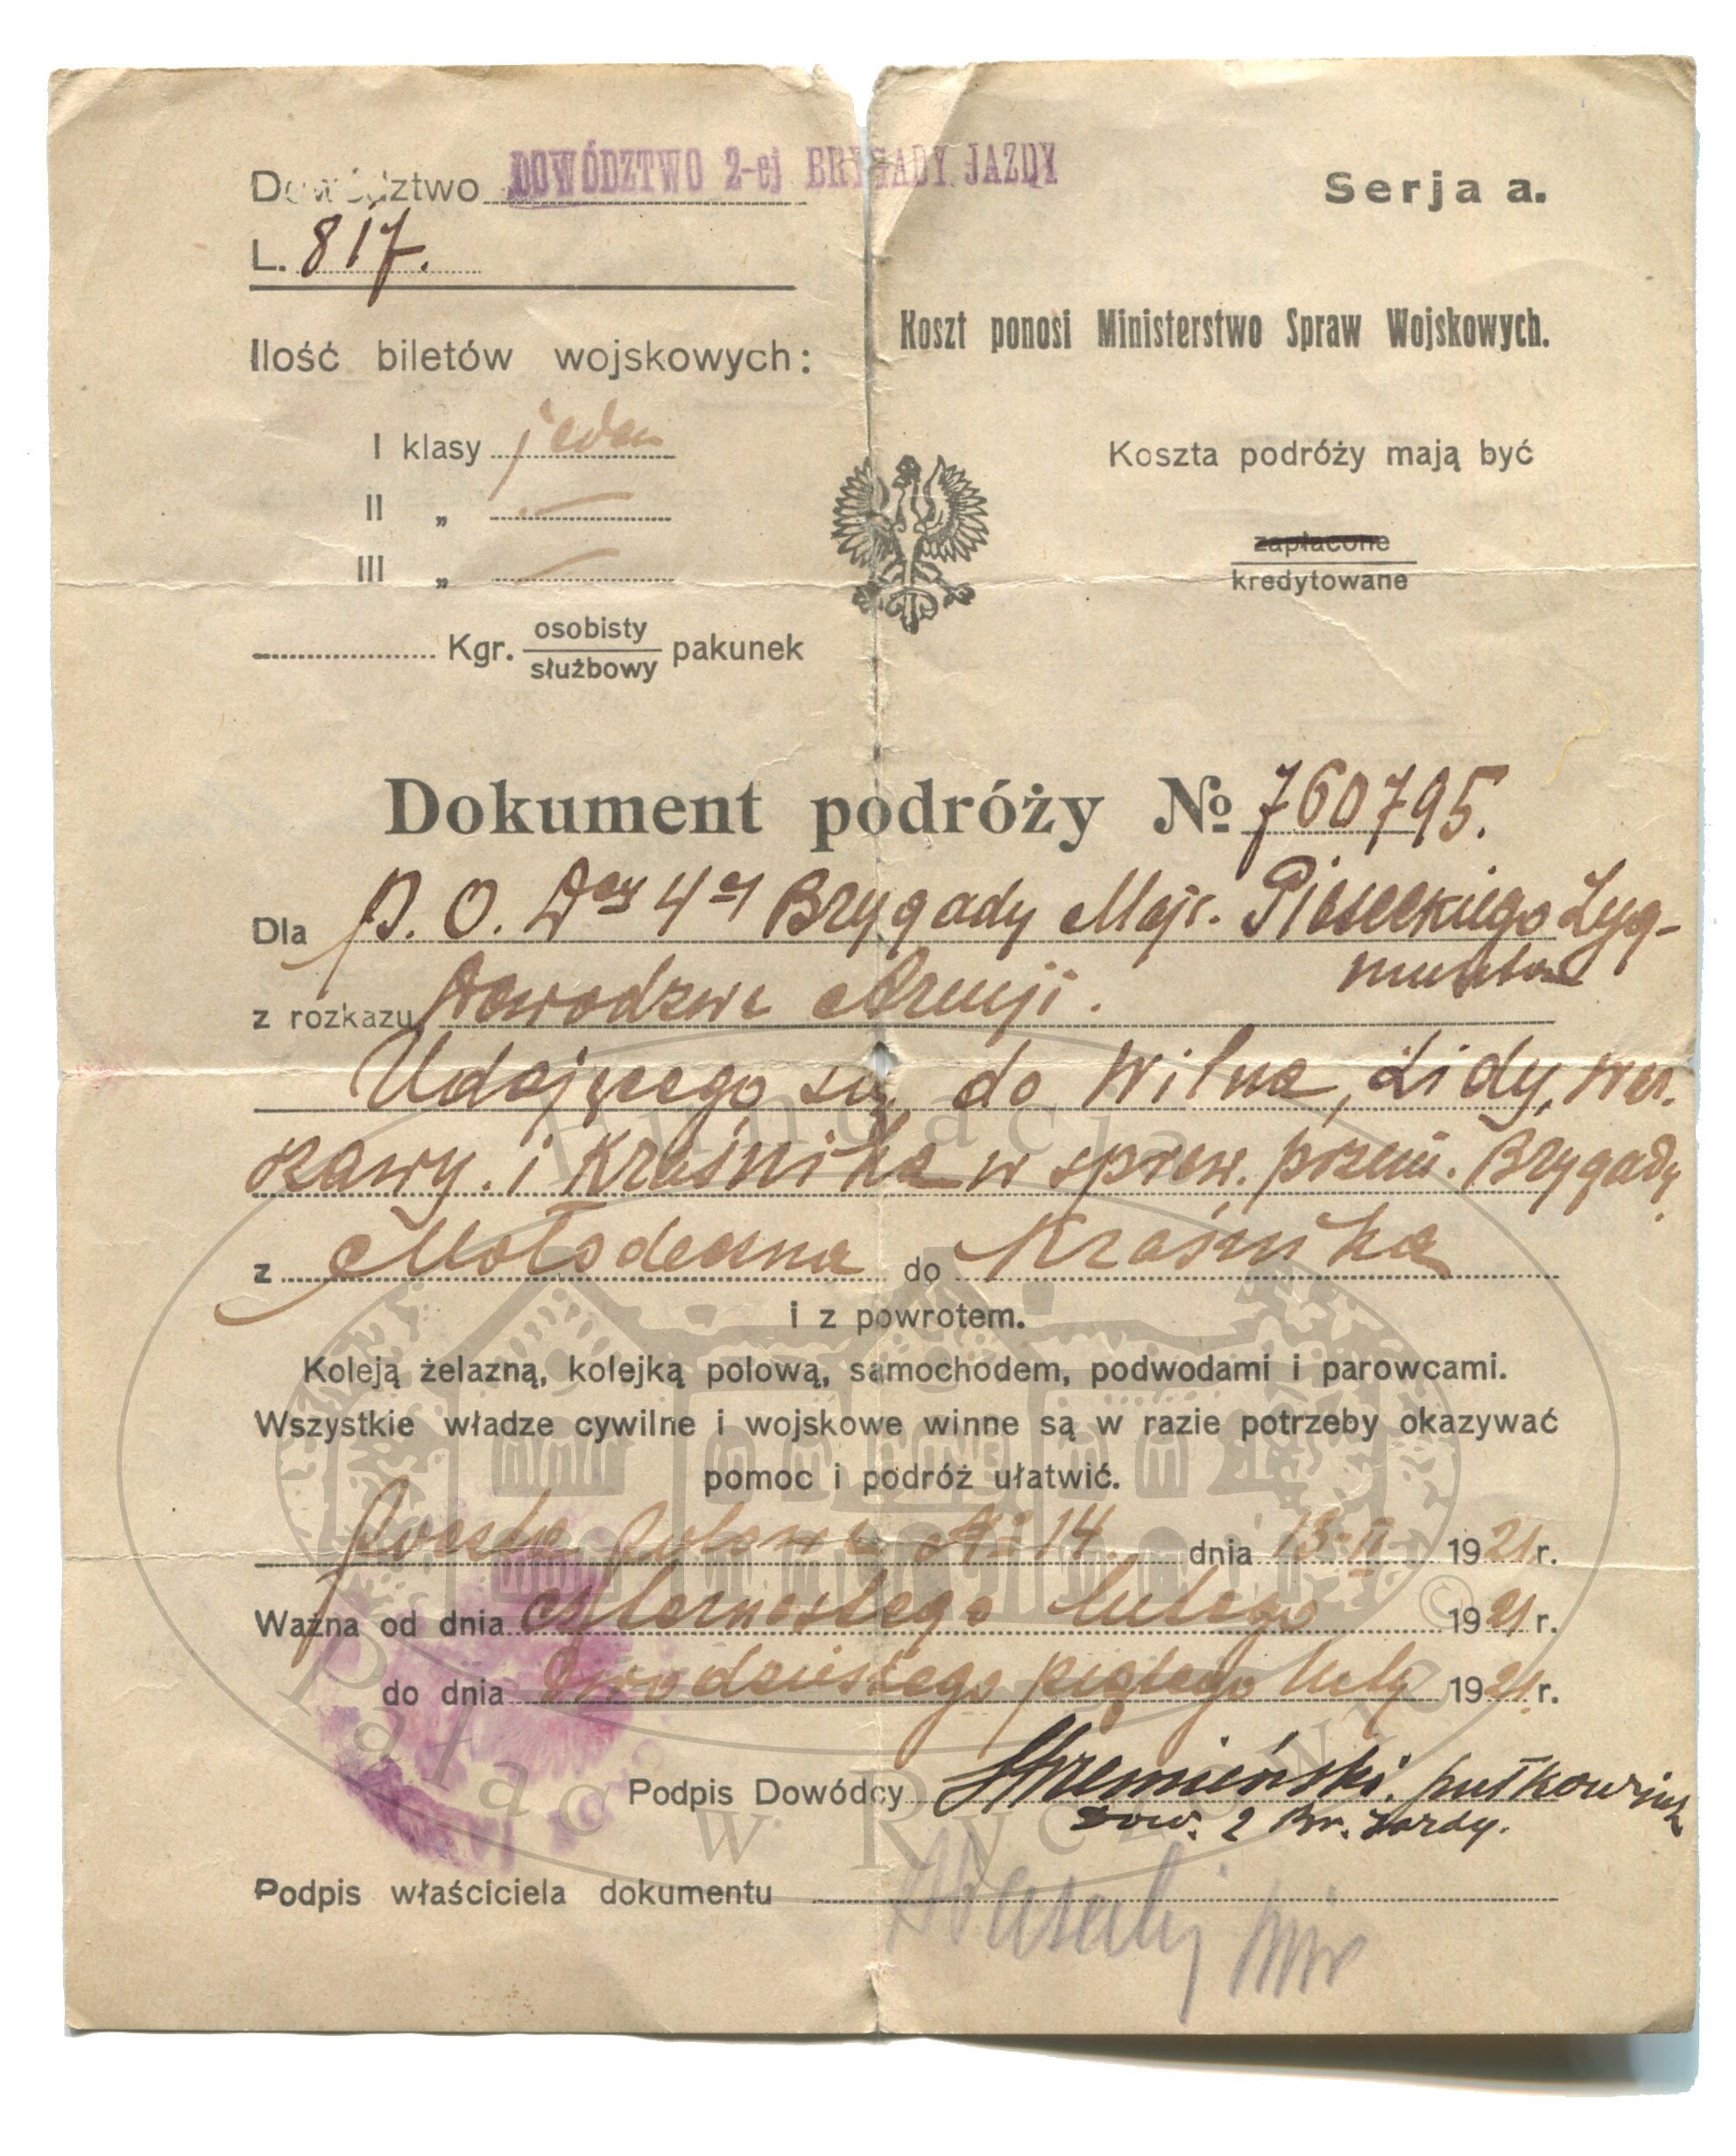 Dowództwo DOWÓDZTWO 2-ej BRYGADY JAZDY
Serja a.
L. 817.
Koszt ponosi Ministerstwo Spraw Wojskowych.
Ilość biletów wojskowych:
I klasy jeden
II „ —
III „ —
Koszta podróży mają być
zapłacone
kredytowane
Kgr. osobisty
służbowy pakunek
Dokument podróży № 760795.
Dla p. O. Dcy 4ej Brygady Majr. Piaseckiego Zyg-
munta
z rozkazu Dowództwa Armji.
Udającego się do Wilna, Lidy, War-
szawy. i Kraśnika w spraw. przeni. Brygady
z Mołodeczna do Kraśnika
i z powrotem.
Koleją żelazną, kolejką polową, samochodem, podwodami i parowcami.
Wszystkie władze cywilne i wojskowe winne są w razie potrzeby okazywać
pomoc i podróż ułatwić.
Poczta polowa № 14. dnia 13-II 1921 r.
Ważna od dnia czternastego lutego 1921 r.
do dnia dwudziestego piątego lutego 1921 r.
Podpis Dowódcy Strzemieński. pułkownik
Dow. 2 Br. Jazdy.
Podpis właściciela dokumentu
Fundacja
Pałac w Ryczowie
©